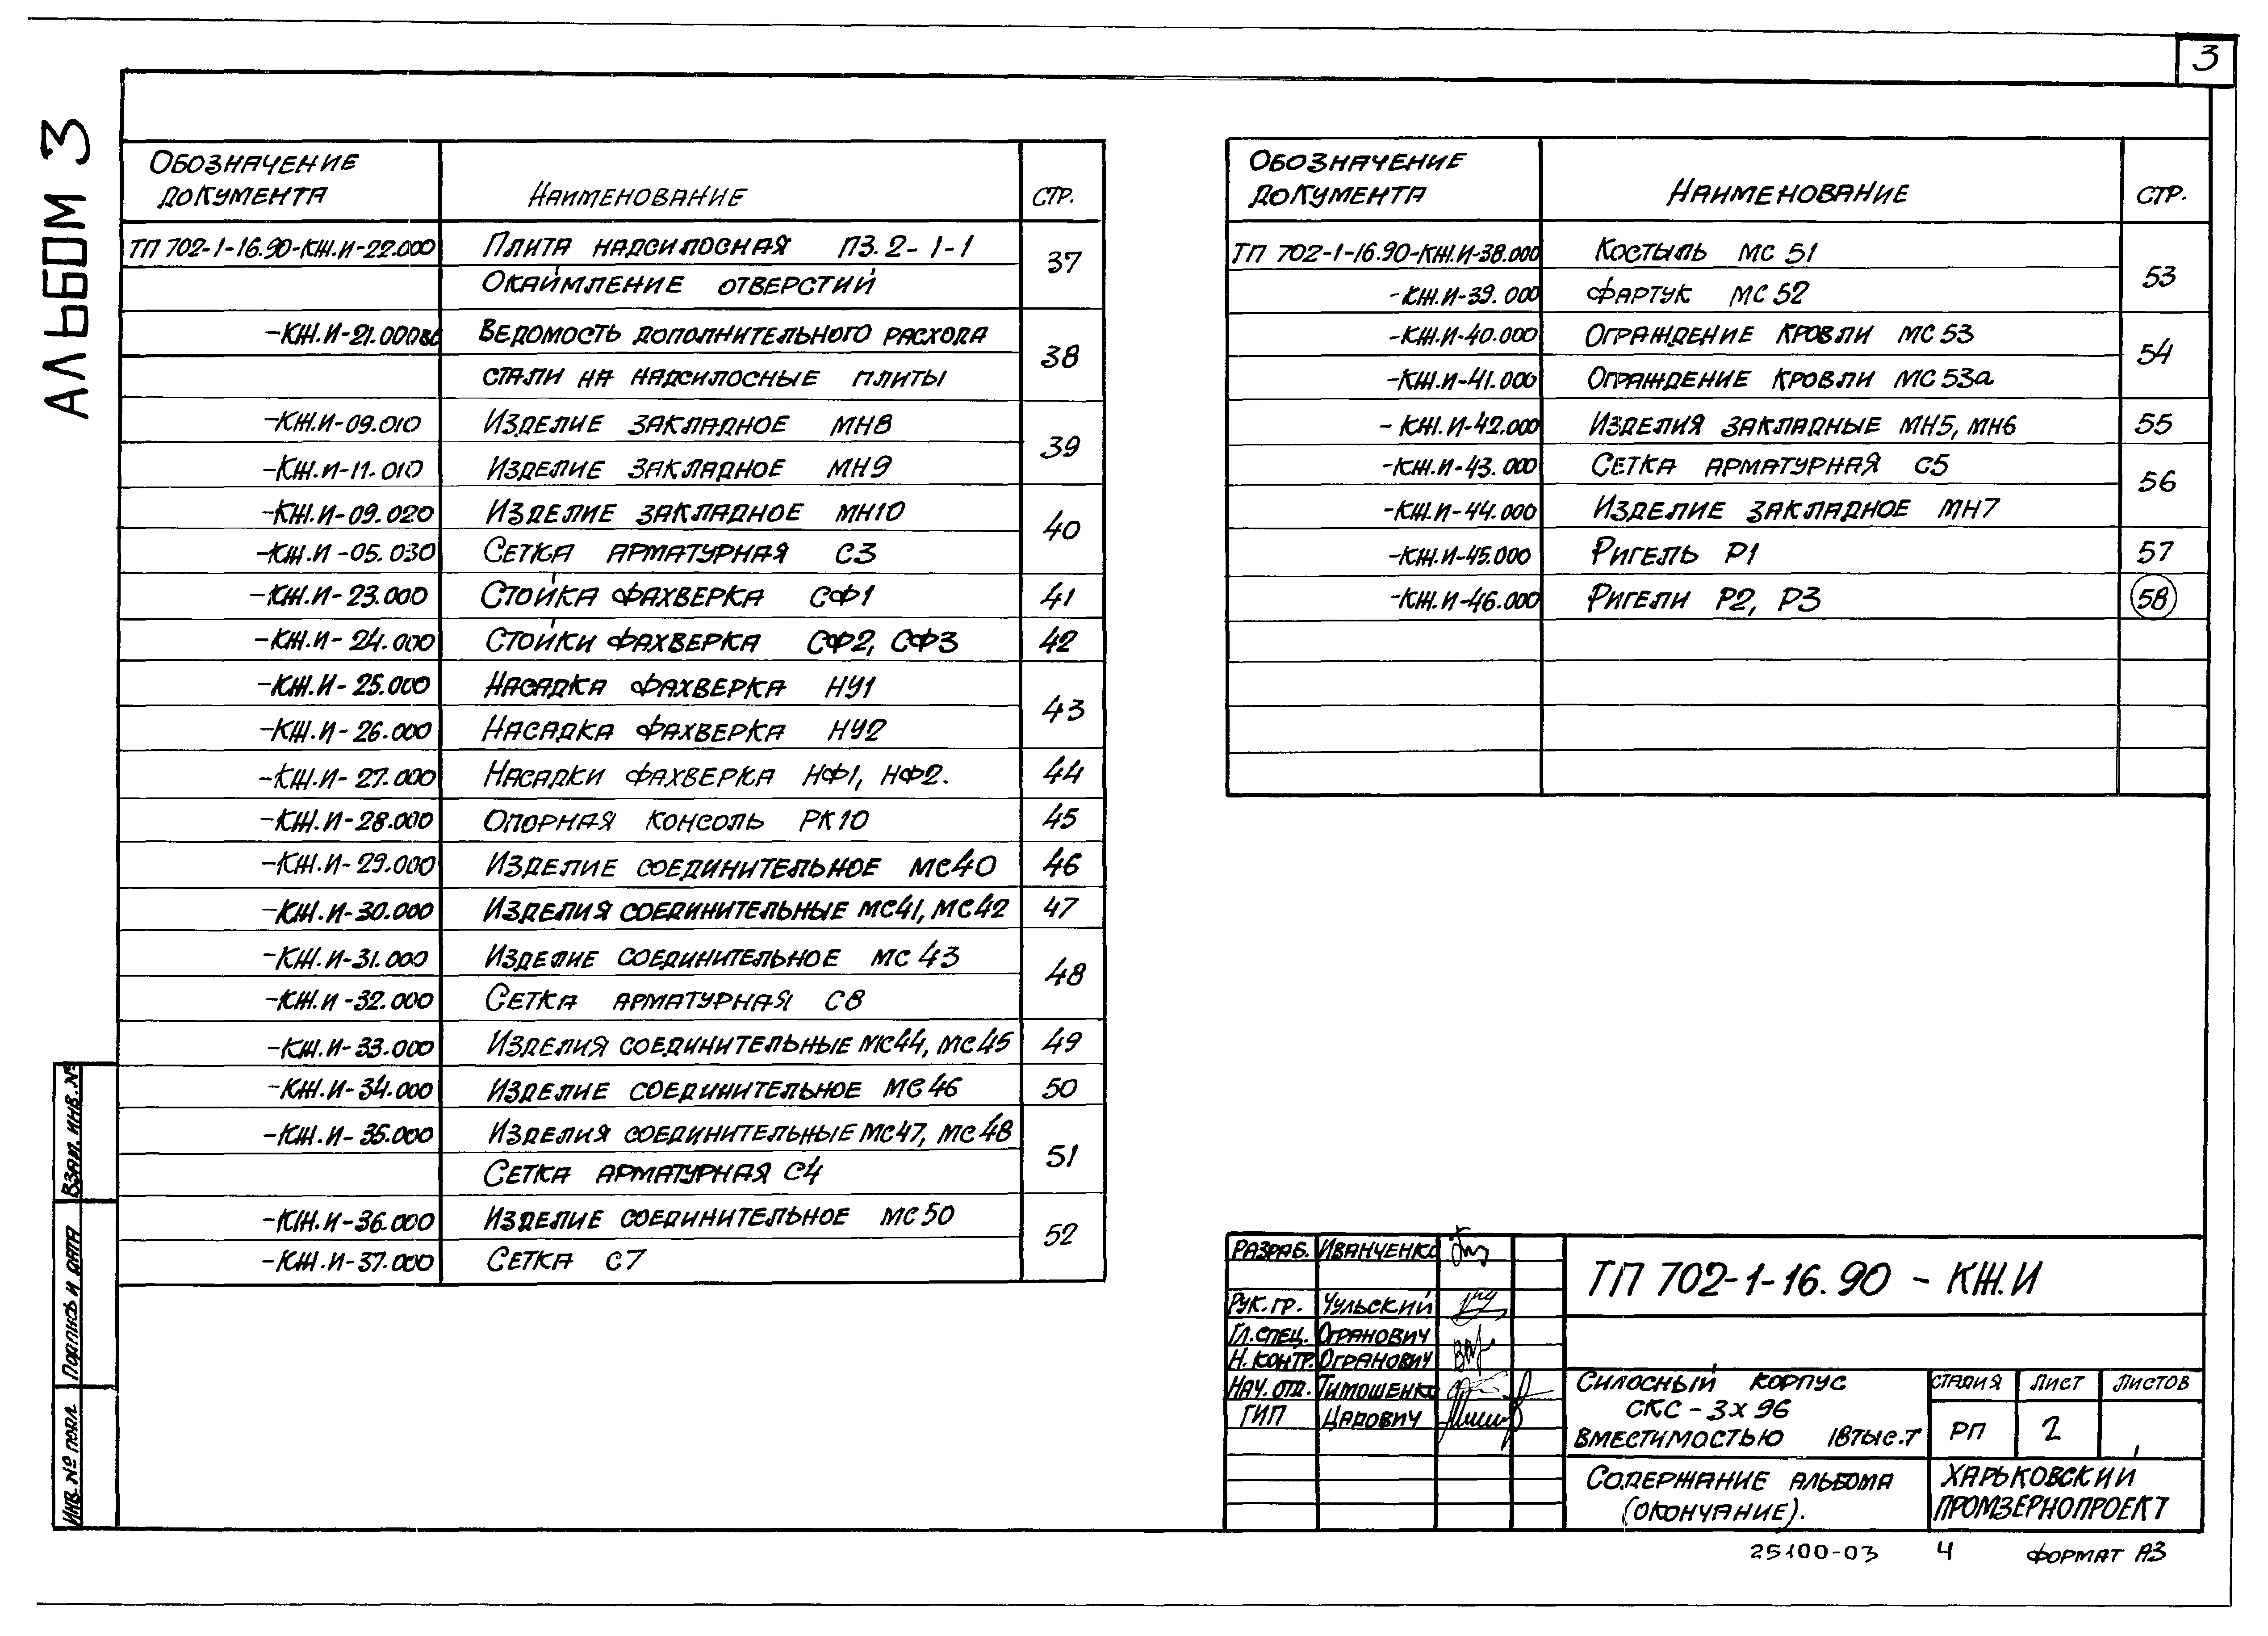 3
АЛЬБОМ 3
ОБОЗНАЧЕНИЕ ДОКУМЕНТА НАИМЕНОВАНИЕ СТР.
ТП 702-1-16.90-КЖ.И-22.000 ПЛИТА НАДСИЛОСНАЯ П3.2-1-1 37
ОКАЙМЛЕНИЕ ОТВЕРСТИЙ
-КЖ.И-21.000ВС ВЕДОМОСТЬ ДОПОЛНИТЕЛЬНОГО РАСХОДА 38
СТАЛИ НА НАДСИЛОСНЫЕ ПЛИТЫ
-КЖ.И-09.010 ИЗДЕЛИЕ ЗАКЛАДНОЕ МН8 39
-КЖ.И-11.010 ИЗДЕЛИЕ ЗАКЛАДНОЕ МН9
-КЖ.И-09.020 ИЗДЕЛИЕ ЗАКЛАДНОЕ МН10 40
-КЖ.И-05.030 СЕТКА АРМАТУРНАЯ С3
-КЖ.И-23.000 СТОЙКА ФАХВЕРКА СФ1 41
-КЖ.И-24.000 СТОЙКИ ФАХВЕРКА СФ2, СФ3 42
-КЖ.И-25.000 НАСАДКА ФАХВЕРКА НУ1 43
-КЖ.И-26.000 НАСАДКА ФАХВЕРКА НУ2
-КЖ.И-27.000 НАСАДКИ ФАХВЕРКА НФ1, НФ2. 44
-КЖ.И-28.000 ОПОРНАЯ КОНСОЛЬ РК10 45
-КЖ.И-29.000 ИЗДЕЛИЕ СОЕДИНИТЕЛЬНОЕ МС40 46
-КЖ.И-30.000 ИЗДЕЛИЯ СОЕДИНИТЕЛЬНЫЕ МС41, МС42 47
-КЖ.И-31.000 ИЗДЕЛИЕ СОЕДИНИТЕЛЬНОЕ МС 43 48
-КЖ.И-32.000 СЕТКА АРМАТУРНАЯ С8
-КЖ.И-33.000 ИЗДЕЛИЯ СОЕДИНИТЕЛЬНЫЕ МС44, МС45 49
-КЖ.И-34.000 ИЗДЕЛИЕ СОЕДИНИТЕЛЬНОЕ МС46 50
-КЖ.И-35.000 ИЗДЕЛИЯ СОЕДИНИТЕЛЬНЫЕ МС47, МС48 51
СЕТКА АРМАТУРНАЯ С4
-КЖ.И-36.000 ИЗДЕЛИЕ СОЕДИНИТЕЛЬНОЕ МС50 52
-КЖ.И-37.000 СЕТКА С7
ОБОЗНАЧЕНИЕ ДОКУМЕНТА НАИМЕНОВАНИЕ СТР.
ТП 702-1-16.90-КЖ.И-38.000 КОСТЫЛЬ МС 51 53
-КЖ.И-39.000 ФАРТУК МС52
-КЖ.И-40.000 ОГРАЖДЕНИЕ КРОВЛИ МС53 54
-КЖ.И-41.000 ОГРАЖДЕНИЕ КРОВЛИ МС53а
-КЖ.И-42.000 ИЗДЕЛИЯ ЗАКЛАДНЫЕ МН5, МН6 55
-КЖ.И-43.000 СЕТКА АРМАТУРНАЯ С5 56
-КЖ.И-44.000 ИЗДЕЛИЕ ЗАКЛАДНОЕ МН7
-КЖ.И-45.000 РИГЕЛЬ Р1 57
-КЖ.И-46.000 РИГЕЛИ Р2, Р3 58
ВЗАМ. ИНВ. №
ПОДПИСЬ И ДАТА
ИНВ. № ПОДЛ
РАЗРАБ. ИВАНЧЕНКО
РУК. ГР. ЧУЛЬСКИЙ
ГЛ. СПЕЦ. ОГРАНОВИЧ
Н. КОНТР. ОГРАНОВИЧ
НАЧ. ОТД. ТИМОШЕНКО
ГИП ЦАДОВИЧ
ТП 702-1-16.90 - КЖ.И
СИЛОСНЫЙ КОРПУС
СКС-3х96
ВМЕСТИМОСТЬЮ 18ТЫС.Т
СТАДИЯ ЛИСТ ЛИСТОВ
РП 2
СОДЕРЖАНИЕ АЛЬБОМА
(ОКОНЧАНИЕ).
ХАРЬКОВСКИЙ
ПРОМЗЕРНОПРОЕКТ
25100-03 4 ФОРМАТ А3